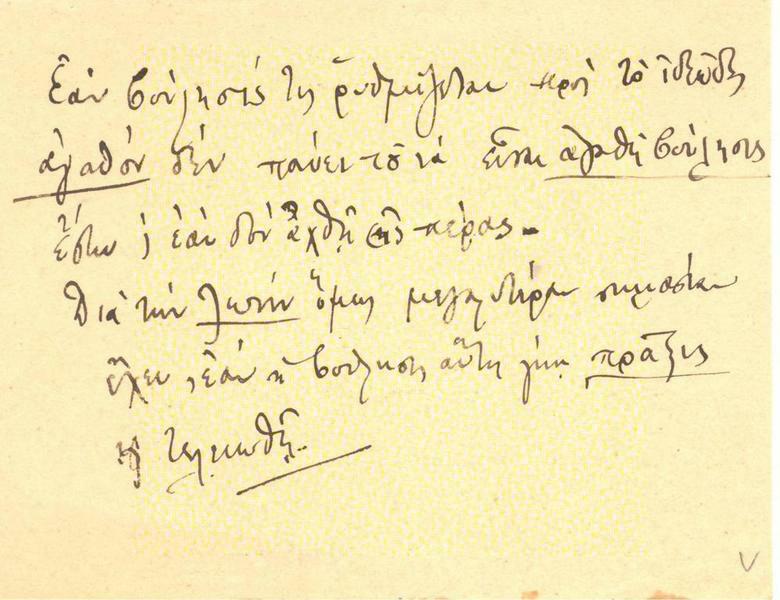 Ἐὰν βούλησίς τις ῥυθμίζεται πρὸς τὸ ἰδεῶδες
ἀγαθὸν δὲν παύει τοῦ νὰ εἶναι ἀγαθὴ βούλησις
ἔστω καὶ ἐὰν δὲν ἀχθῇ εἰς πέρας.
Διὰ τὴν ὅμως μεγαλυτέραν σημασίαν
ἔχει, ἐὰν ἡ βούλησις αὕτη γίνῃ πρᾶξις